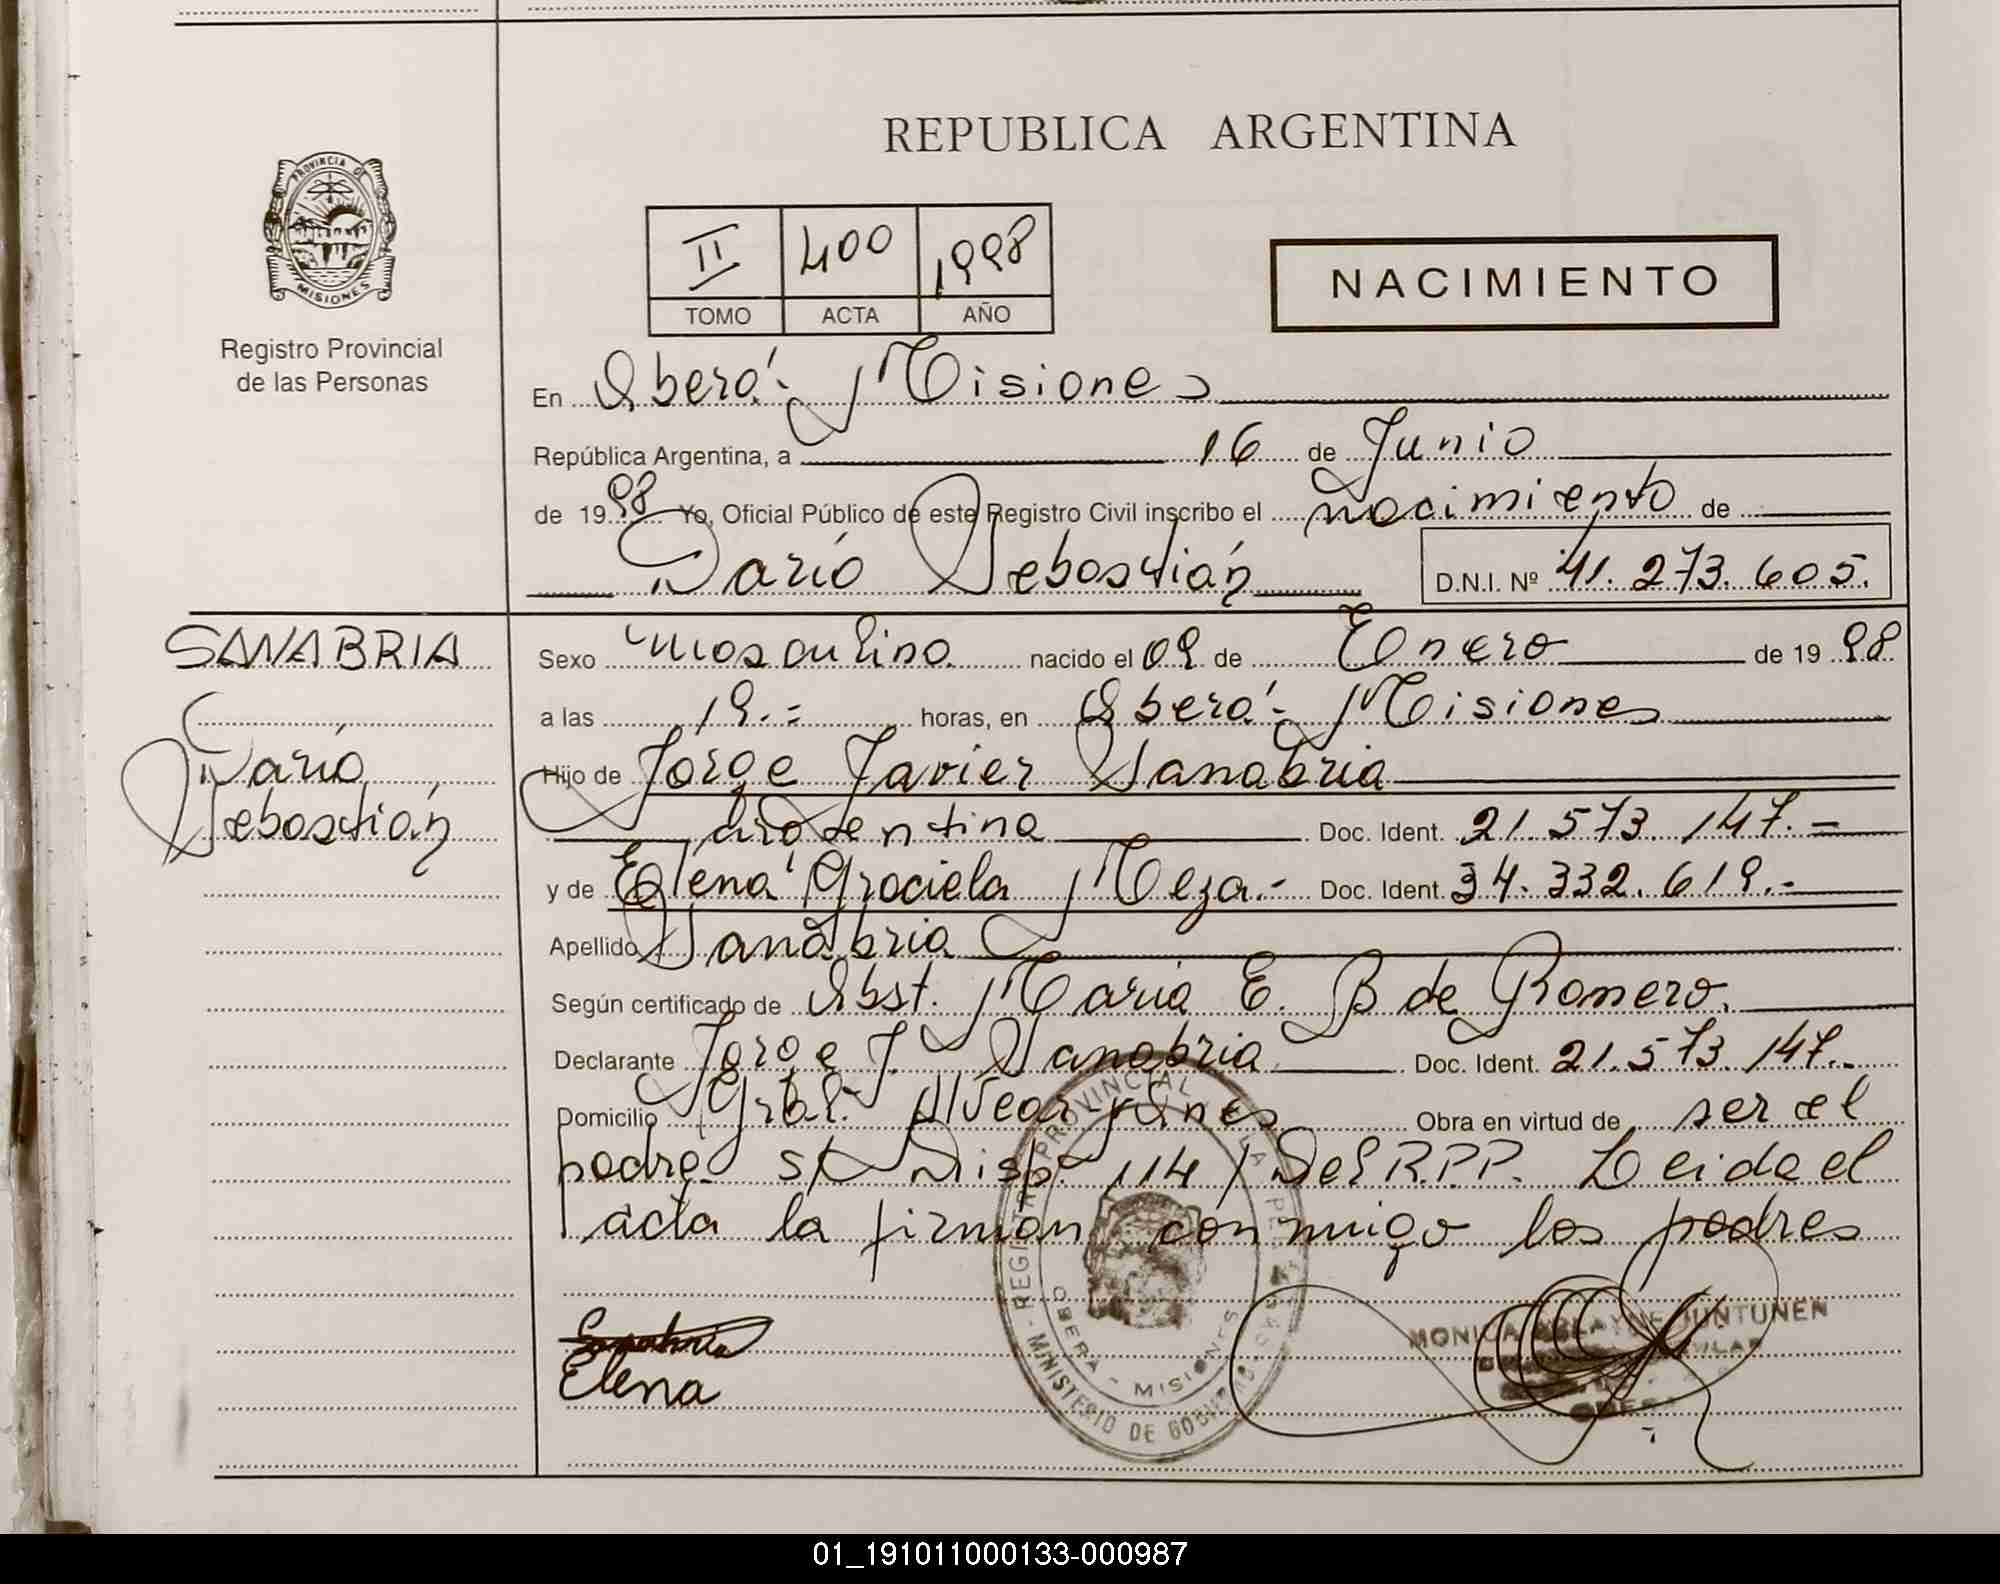 REPUBLICA ARGENTINA
PROVINCIA DE
MISIONES
Registro Provincial
de las Personas
II 400 1998
TOMO ACTA AÑO
NACIMIENTO
En Oberá - Misiones
República Argentina, a 16 de Junio
de 1998 Yo, Oficial Público de este Registro Civil inscribo el nacimiento de
Darío Sebastián D.N.I. Nº 41.273.605.
SANABRIA
Darío
Sebastián
Sexo masculino nacido el 09 de Enero de 1998
a las 19.= horas, en Oberá - Misiones
Hijo de Jorge Javier Sanabria
argentina Doc. Ident. 21.573.147.-
y de Elena Graciela Meza.- Doc. Ident. 34.332.619.-
Apellido Sanabria
Según certificado de Obst. Maria E. B de Romero.
Declarante Jorge J. Sanabria Doc. Ident. 21.573.147.-
Domicilio Gral. Alvear y Ines Obra en virtud de ser el
padre s/ Disp. 114/ Del R.P.P. Leida el
acta la firman conmigo los padres
Sanabria
Elena
REGISTRO PROVINCIAL DE LAS PERSONAS - MINISTERIO DE GOBIERNO
OBERA - MISIONES
MONICA JUNTUNEN
01_191011000133-000987